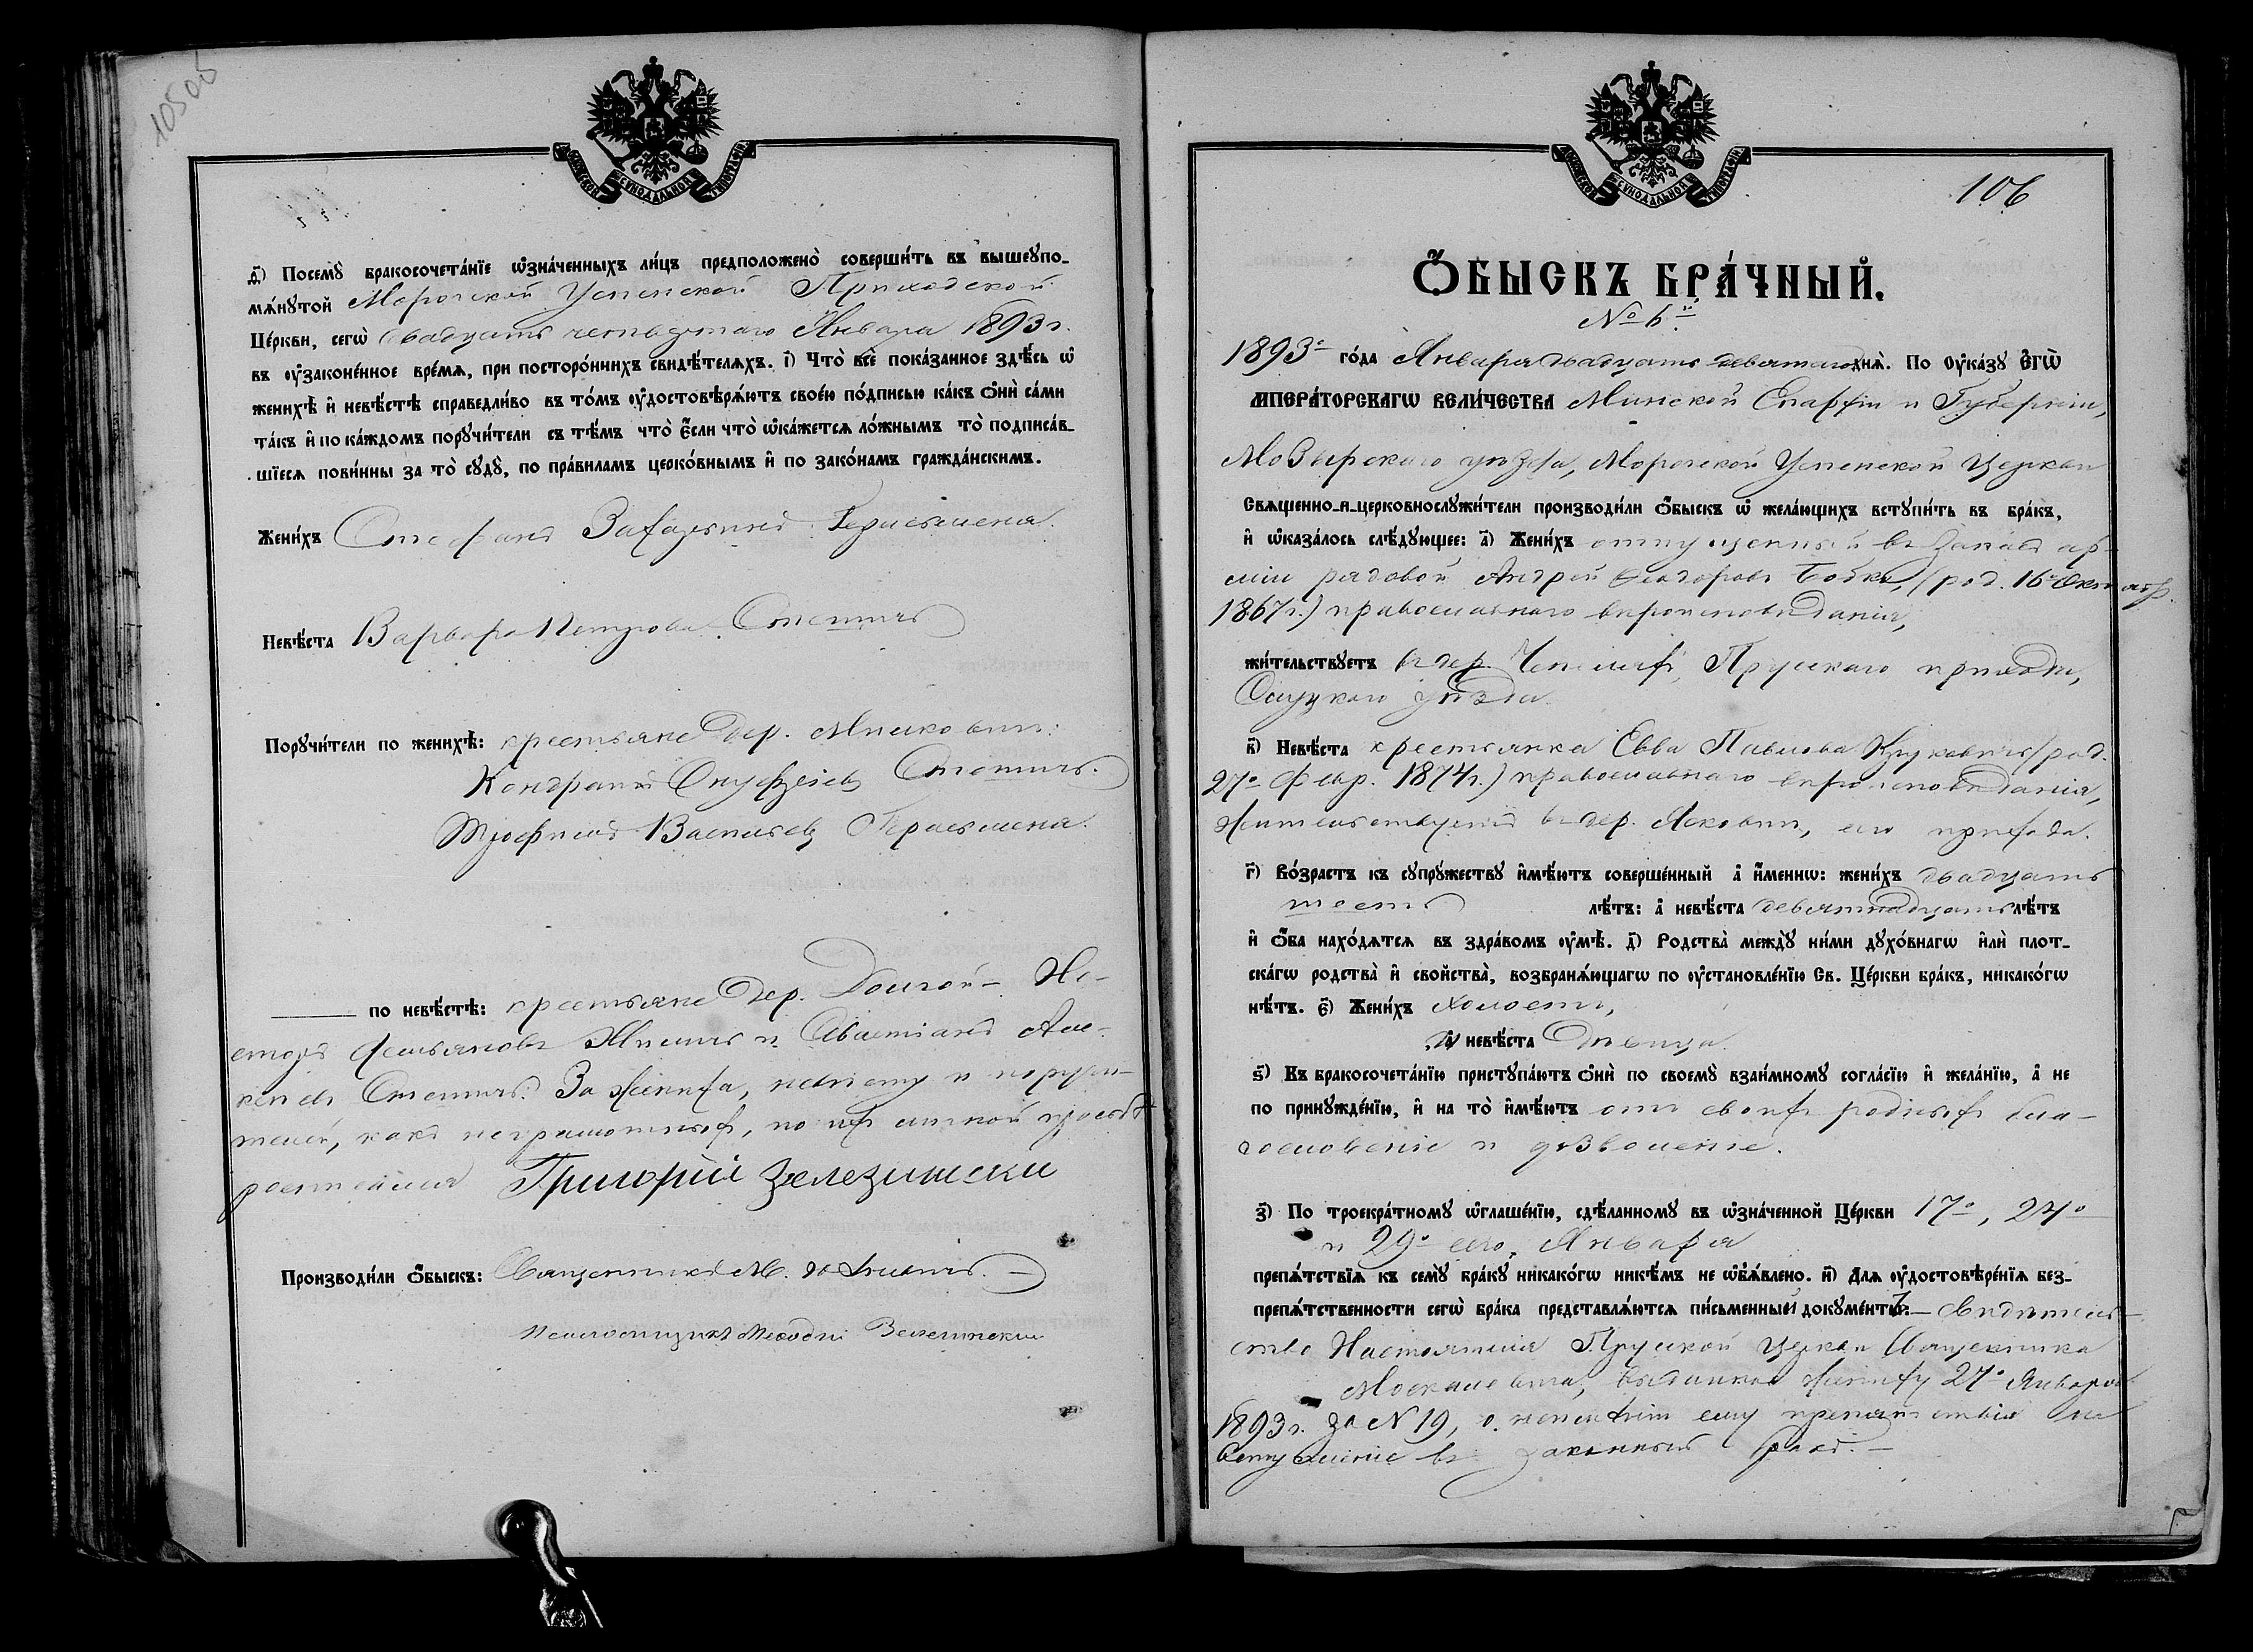 105об
МОСКОВСКОЙ СѴНОДАЛЬНОЙ ТИПОГРАФІИ
д҃і) Посемꙋ̀ бракосочета́нїе ѡ҆зна́ченныхъ ли́цъ предположено̀ соверши́ть въ вышеꙋпо-
мѧ́нꙋтой Морочской Успенской Приходской
Це́ркви, сегѡ̀ двадцать четвертаго Января 1893 г.
въ ᲂу҆законе́нное вре́мѧ, при посторо́ннихъ свидѣ́телѧхъ. і҃) Что̀ всѐ пока́занное здѣ́сь ѡ҆
женихѣ̀ и҆ невѣ́стѣ справедли́во въ то́мъ ᲂу҆достовѣрѧ́ютъ свое́ю по́дписью ка́къ ѻ҆нѝ са́ми
та́къ и҆ по ка́ждомъ порꙋчи́тели съ тѣ́мъ что̀ є҆́сли что̀ ѡ҆ка́жетсѧ ло́жнымъ то̀ подписа́в-
шїесѧ пови́нны за то̀ сꙋдꙋ̀, по пра́виламъ церко́внымъ и҆ по зако́намъ гражда́нскимъ.
Жени́хъ Стефанъ Захарьинъ Герасимена.
Невѣ́ста Варвара Петрова Стотичъ
Порꙋчи́тели по женихѣ̀: крестьяне дер. Милковичъ:
Кондратій Стотичъ.
Трофимъ Васильевъ Герасимена.
по невѣ́стѣ: крестьяне дер. Долгой Не-
сторъ и Севастіанъ Але-
Стотичъ. За жениха, невѣсту и поручи-
телей, какъ неграмотныхъ, по ихъ личной просьбѣ
росписался Григорій Зелезински
Производи́ли ѻ҆́быскъ: Священникъ М.
Псаломщикъ
МОСКОВСКОЙ СѴНОДАЛЬНОЙ ТИПОГРАФІИ
106
Ѻ҆́БЫСКЪ БРА́ЧНЫЙ.
№ 6й
1893го го́да Января двадцать девятаго днѧ̀. По ᲂу҆ка́зꙋ Є҆гѡ̀
И҆МПЕРА́ТОРСКАГѠ ВЕЛИ́ЧЕСТВА Минской Епархіи и Губерніи,
Мозырскаго уѣзда, Морочской Успенской Церкви
Свѧщенно-и-церковнослꙋжи́тели производи́ли ѻ҆́быскъ ѡ҆ жела́ющихъ встꙋпи́ть въ бра́къ,
и҆ ѡ҆каза́лось слѣ́дꙋющее: а҃) Жени́хъ отпущенный въ запасъ ар-
міи рядовой Андрей Ѳеодоровъ Бобко, (род. 16го Октябр.
1867 г.) православнаго вѣроисповѣданія,
жи́тельствꙋетъ въ дер. Прускаго прихода,
Слуцкаго уѣзда.
в҃) Невѣ́ста крестьянка Евва Павлова Крукевичъ (род.
27го февр. 1874 г.) православнаго вѣроисповѣданія,
жительствуетъ въ дер. Ясковичъ, сего прихода.
г҃) Во́зрастъ къ сꙋпрꙋ́жествꙋ и҆мѣ́ютъ соверше́нный а҆ и҆́меннѡ: жени́хъ двадцать
шесть лѣ́тъ: а҆ невѣ́ста девятнадцать лѣ́тъ
и҆ ѻ҆́ба нахо́дѧтсѧ въ здра́вомъ ᲂу҆мѣ̀. д҃) Родства̀ междꙋ̀ ни́ми дꙋхо́внагѡ и҆лѝ плот-
ска́гѡ родства̀ и҆ свойства̀, возбранѧ́ющагѡ по ᲂу҆становле́нїю Св. Це́ркви бра́къ, никако́гѡ
нѣ́тъ. є҃) Жени́хъ холостъ,
а҆ невѣ́ста дѣвица.
ѕ҃) Къ бракосочета́нїю пристꙋпа́ютъ ѻ҆нѝ по своемꙋ̀ взаи́мномꙋ согла́сїю и҆ жела́нїю, а҆ не
по принꙋжде́нїю, и҆ на то̀ и҆мѣ́ютъ отъ своихъ родныхъ бла-
гословеніе и дозволеніе.
з҃) По троекра́тномꙋ ѡ҆глаше́нїю, сдѣ́ланномꙋ въ ѡ҆зна́ченной Це́ркви 17го, 24го
и 29го сего Января
препѧ́тствїѧ къ семꙋ̀ бра́кꙋ никако́гѡ никѣ́мъ не ѡ҆б̾ѧ́влено. и҃) Длѧ ᲂу҆достовѣре́нїѧ без-
препѧ́тственности сегѡ̀ бра́ка представлѧ́ютсѧ пи́сьменный докꙋме́нтъ: – свидѣтель-
ство Настоятеля Пруской Церкви Священника
Москалевича, выданное жениху 27го Января
1893 г. за № 19, о неимѣніи ему препятствія на
вступленіе въ законный бракъ. –